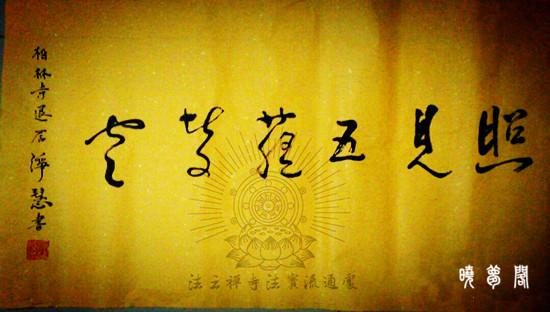 照見五蘊皆空
柏林寺退居淨慧書
法云禪寺法寶流通處
曉夢閣